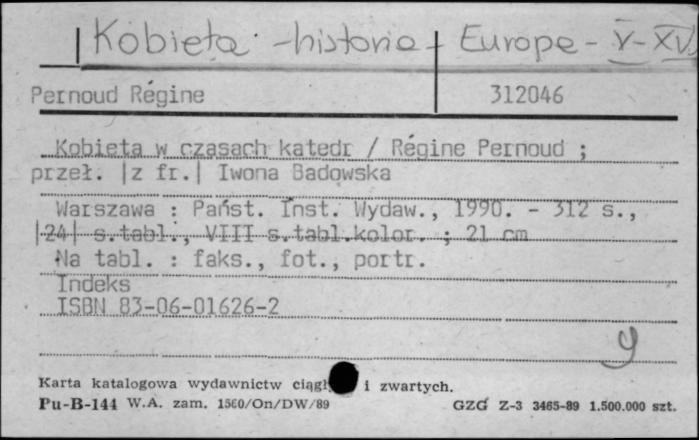 Kobieta - historia - Europa - V-XV w.
Pernoud Régine 312046
Kobieta w czasach katedr / Régine Pernoud ;
przeł. |z fr.| Iwona Badowska
Warszawa : Państ. Inst. Wydaw., 1990. - 312 s.,
|24| s.tabl., VIII s.tabl.kolor. ; 21 cm
Na tabl. : faks., fot., portr.
Indeks
ISBN 83-06-01626-2
y
Karta katalogowa wydawnictw ciągł i zwartych.
Pu-B-144 W.A. zam. 1560/On/DW/89 GZG Z-3 3465-89 1.500.000 szt.